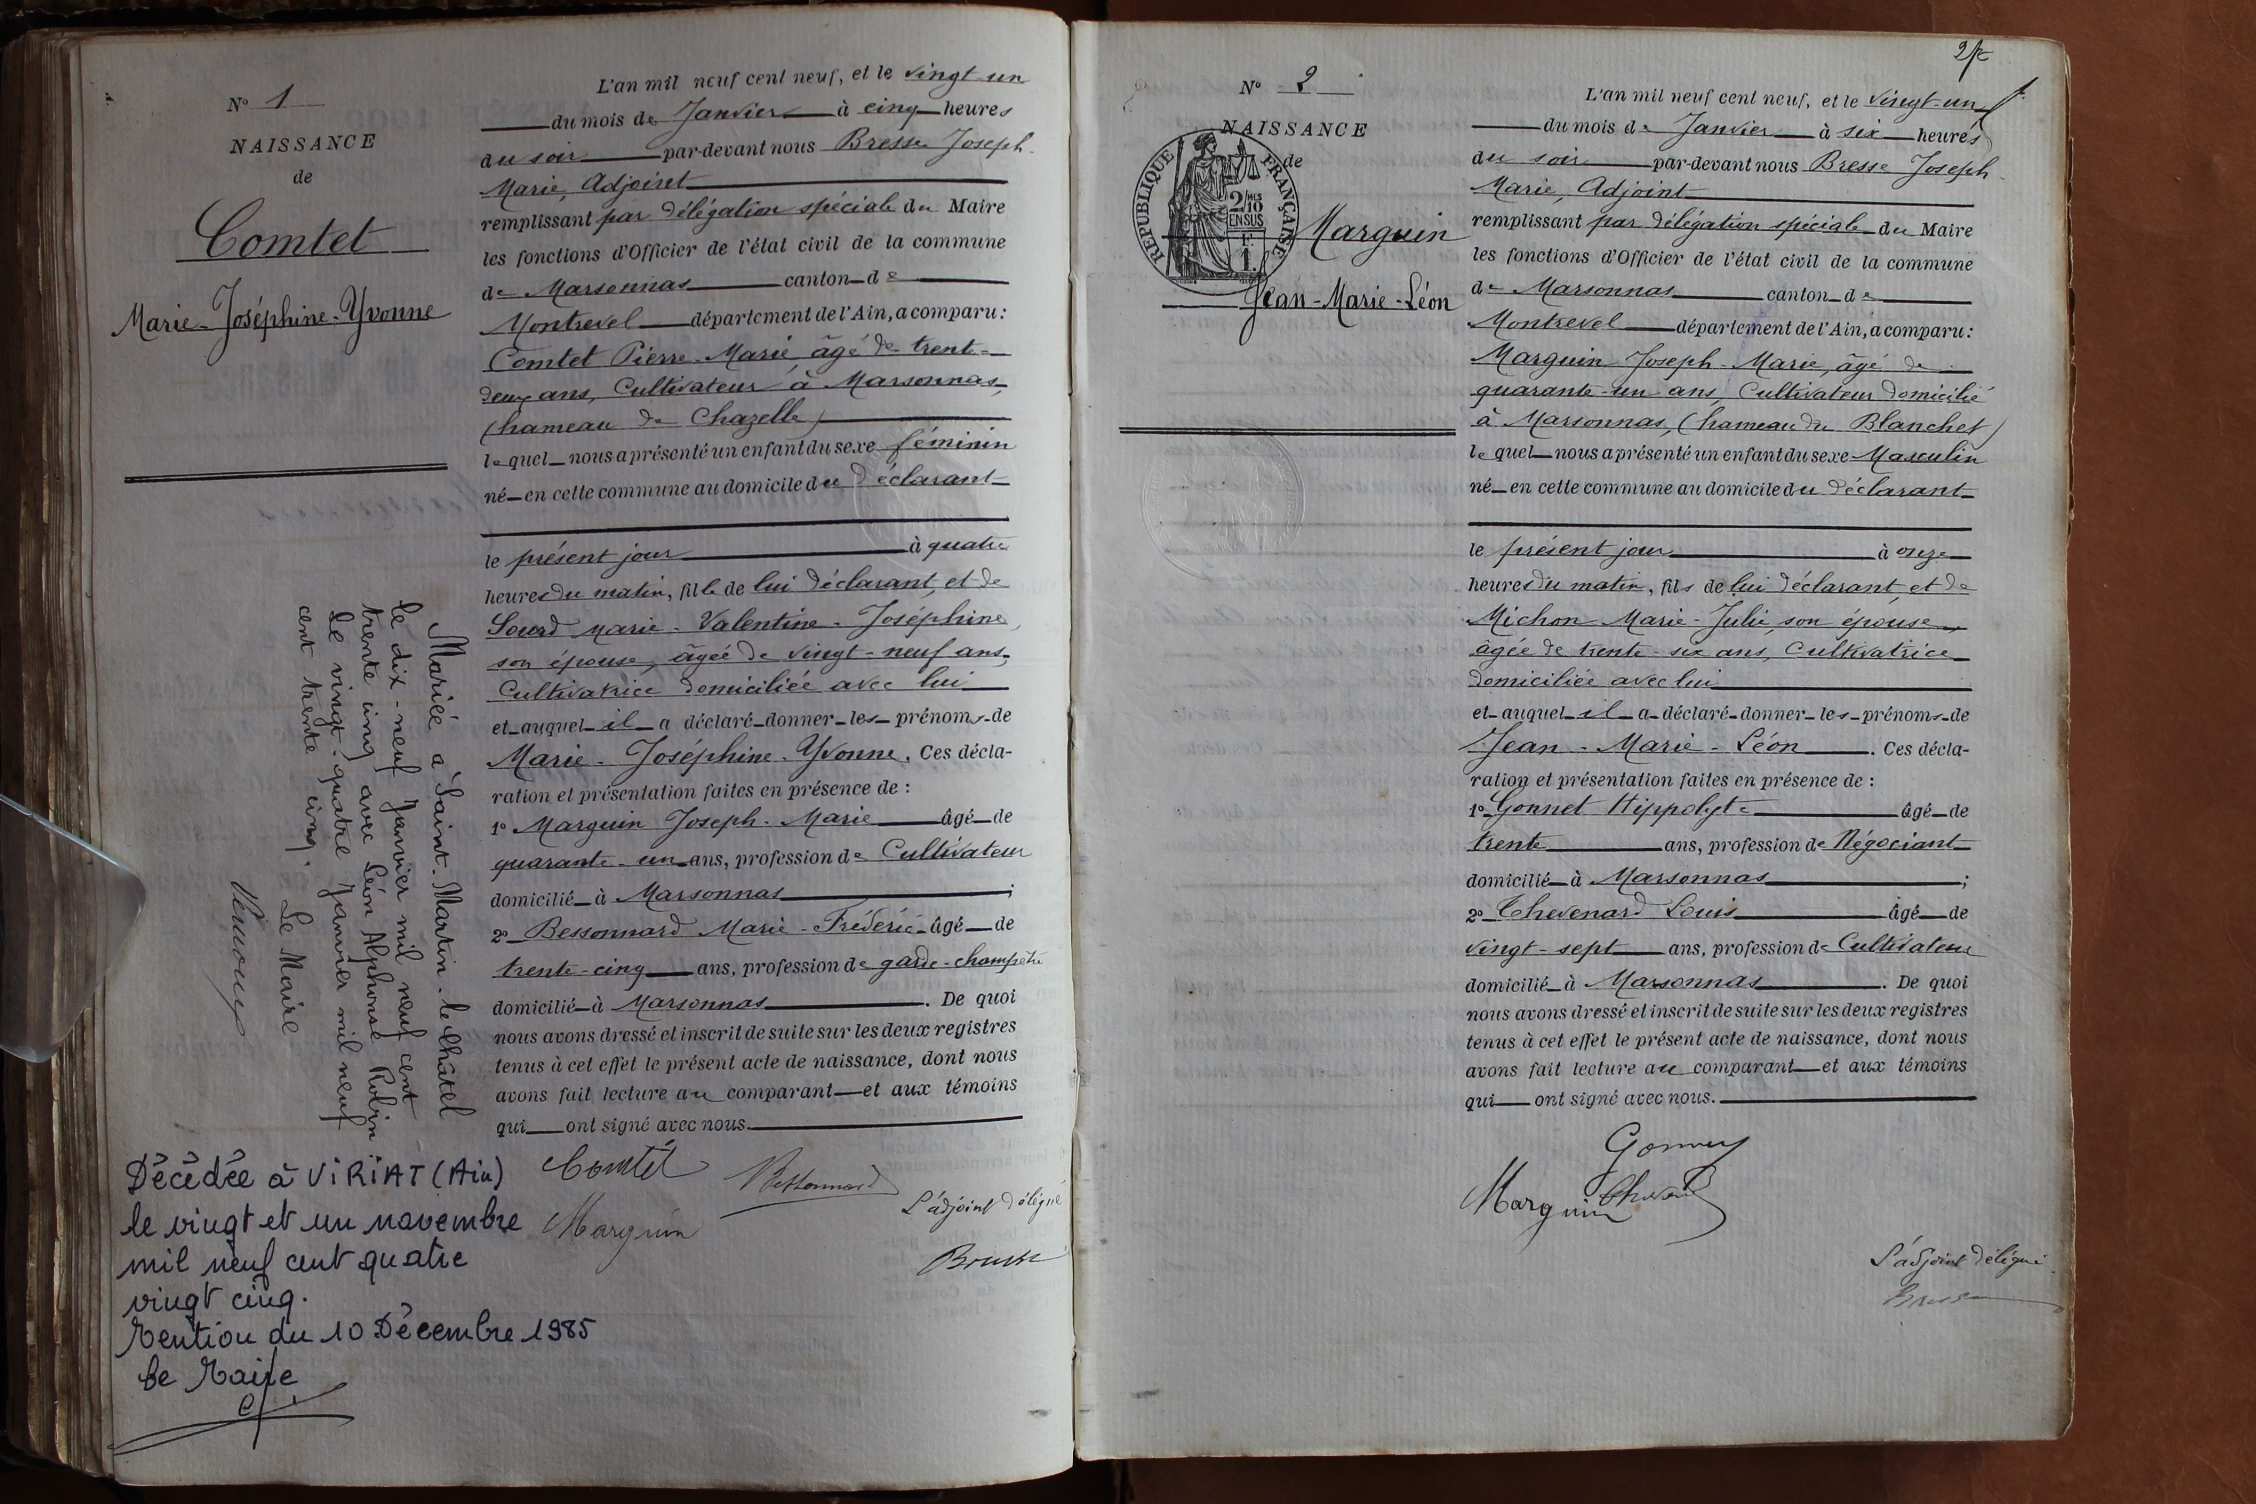 N° 1
NAISSANCE
de
Comtet
Marie-Joséphine-Yvonne
L'an mil neuf cent neuf, et le vingt-un
du mois de Janvier à cinq heures
du soir par-devant nous Bresse Joseph-
Marie, Adjoint
remplissant par délégation spéciale du Maire
les fonctions d'Officier de l'état civil de la commune
de Marsonnas canton de
Montrevel département de l'Ain, a comparu :
Comtet Pierre-Marie, âgé de trent-
deux ans, Cultivateur à Marsonnas,
(hameau de Chazelle)
lequel nous a présenté un enfant du sexe féminin
né en cette commune au domicile du déclarant
le présent jour à quatre
heures du matin, fille de lui déclarant, et de
Sourd Marie-Valentine-Joséphine,
son épouse, âgée de vingt-neuf ans,
Cultivatrice domiciliée avec lui
et auquel il a déclaré donner les prénoms de
Marie-Joséphine-Yvonne. Ces décla-
ration et présentation faites en présence de :
1° Marguin Joseph-Marie âgé de
quarante-un ans, profession de Cultivateur
domicilié à Marsonnas ;
2° Bessonnard Marie-Fréderic âgé de
trente-cinq ans, profession de garde-champêtre
domicilié à Marsonnas. De quoi
nous avons dressé et inscrit de suite sur les deux registres
tenus à cet effet le présent acte de naissance, dont nous
avons fait lecture au comparant et aux témoins
qui ont signé avec nous.
Comtet Bessonnard
Marguin
L'adjoint délégué
Bresse
Mariée à Saint-Martin-le-Châtel
le dix-neuf Janvier mil neuf cent
trente cinq avec Léon Alphonse Robin
Le vingt-quatre Janvier mil neuf
cent trente cinq.
Le Maire
Décédée à VIRIAT (Ain)
le vingt et un novembre
mil neuf cent quatre
vingt cinq.
Mention du 10 Décembre 1985
Le Maire
2
N° 2
NAISSANCE
de
RÉPUBLIQUE FRANÇAISE
2/10
EN SUS
F.
1.
Marguin
Jean-Marie-Léon
L'an mil neuf cent neuf, et le vingt-un
du mois de Janvier à six heures
du soir par-devant nous Bresse Joseph-
Marie, Adjoint
remplissant par délégation spéciale du Maire
les fonctions d'Officier de l'état civil de la commune
de Marsonnas canton de
Montrevel département de l'Ain, a comparu :
Marguin Joseph-Marie, âgé de
quarante-un ans, Cultivateur domicilié
à Marsonnas, (hameau du Blanchet)
lequel nous a présenté un enfant du sexe Masculin
né en cette commune au domicile du déclarant
le présent jour à onze
heures du matin, fils de lui déclarant, et de
Michon Marie-Julie, son épouse,
âgée de trente-six ans, Cultivatrice
domiciliée avec lui
et auquel il a déclaré donner les prénoms de
Jean-Marie-Léon. Ces décla-
ration et présentation faites en présence de :
1° Gonnet Hippolyte âgé de
trente ans, profession de Négociant
domicilié à Marsonnas ;
2° Thevenard Louis âgé de
vingt-sept ans, profession de Cultivateur
domicilié à Marsonnas. De quoi
nous avons dressé et inscrit de suite sur les deux registres
tenus à cet effet le présent acte de naissance, dont nous
avons fait lecture au comparant et aux témoins
qui ont signé avec nous.
Gonnet
Marguin Thevenard
L'adjoint délégué
Bresse